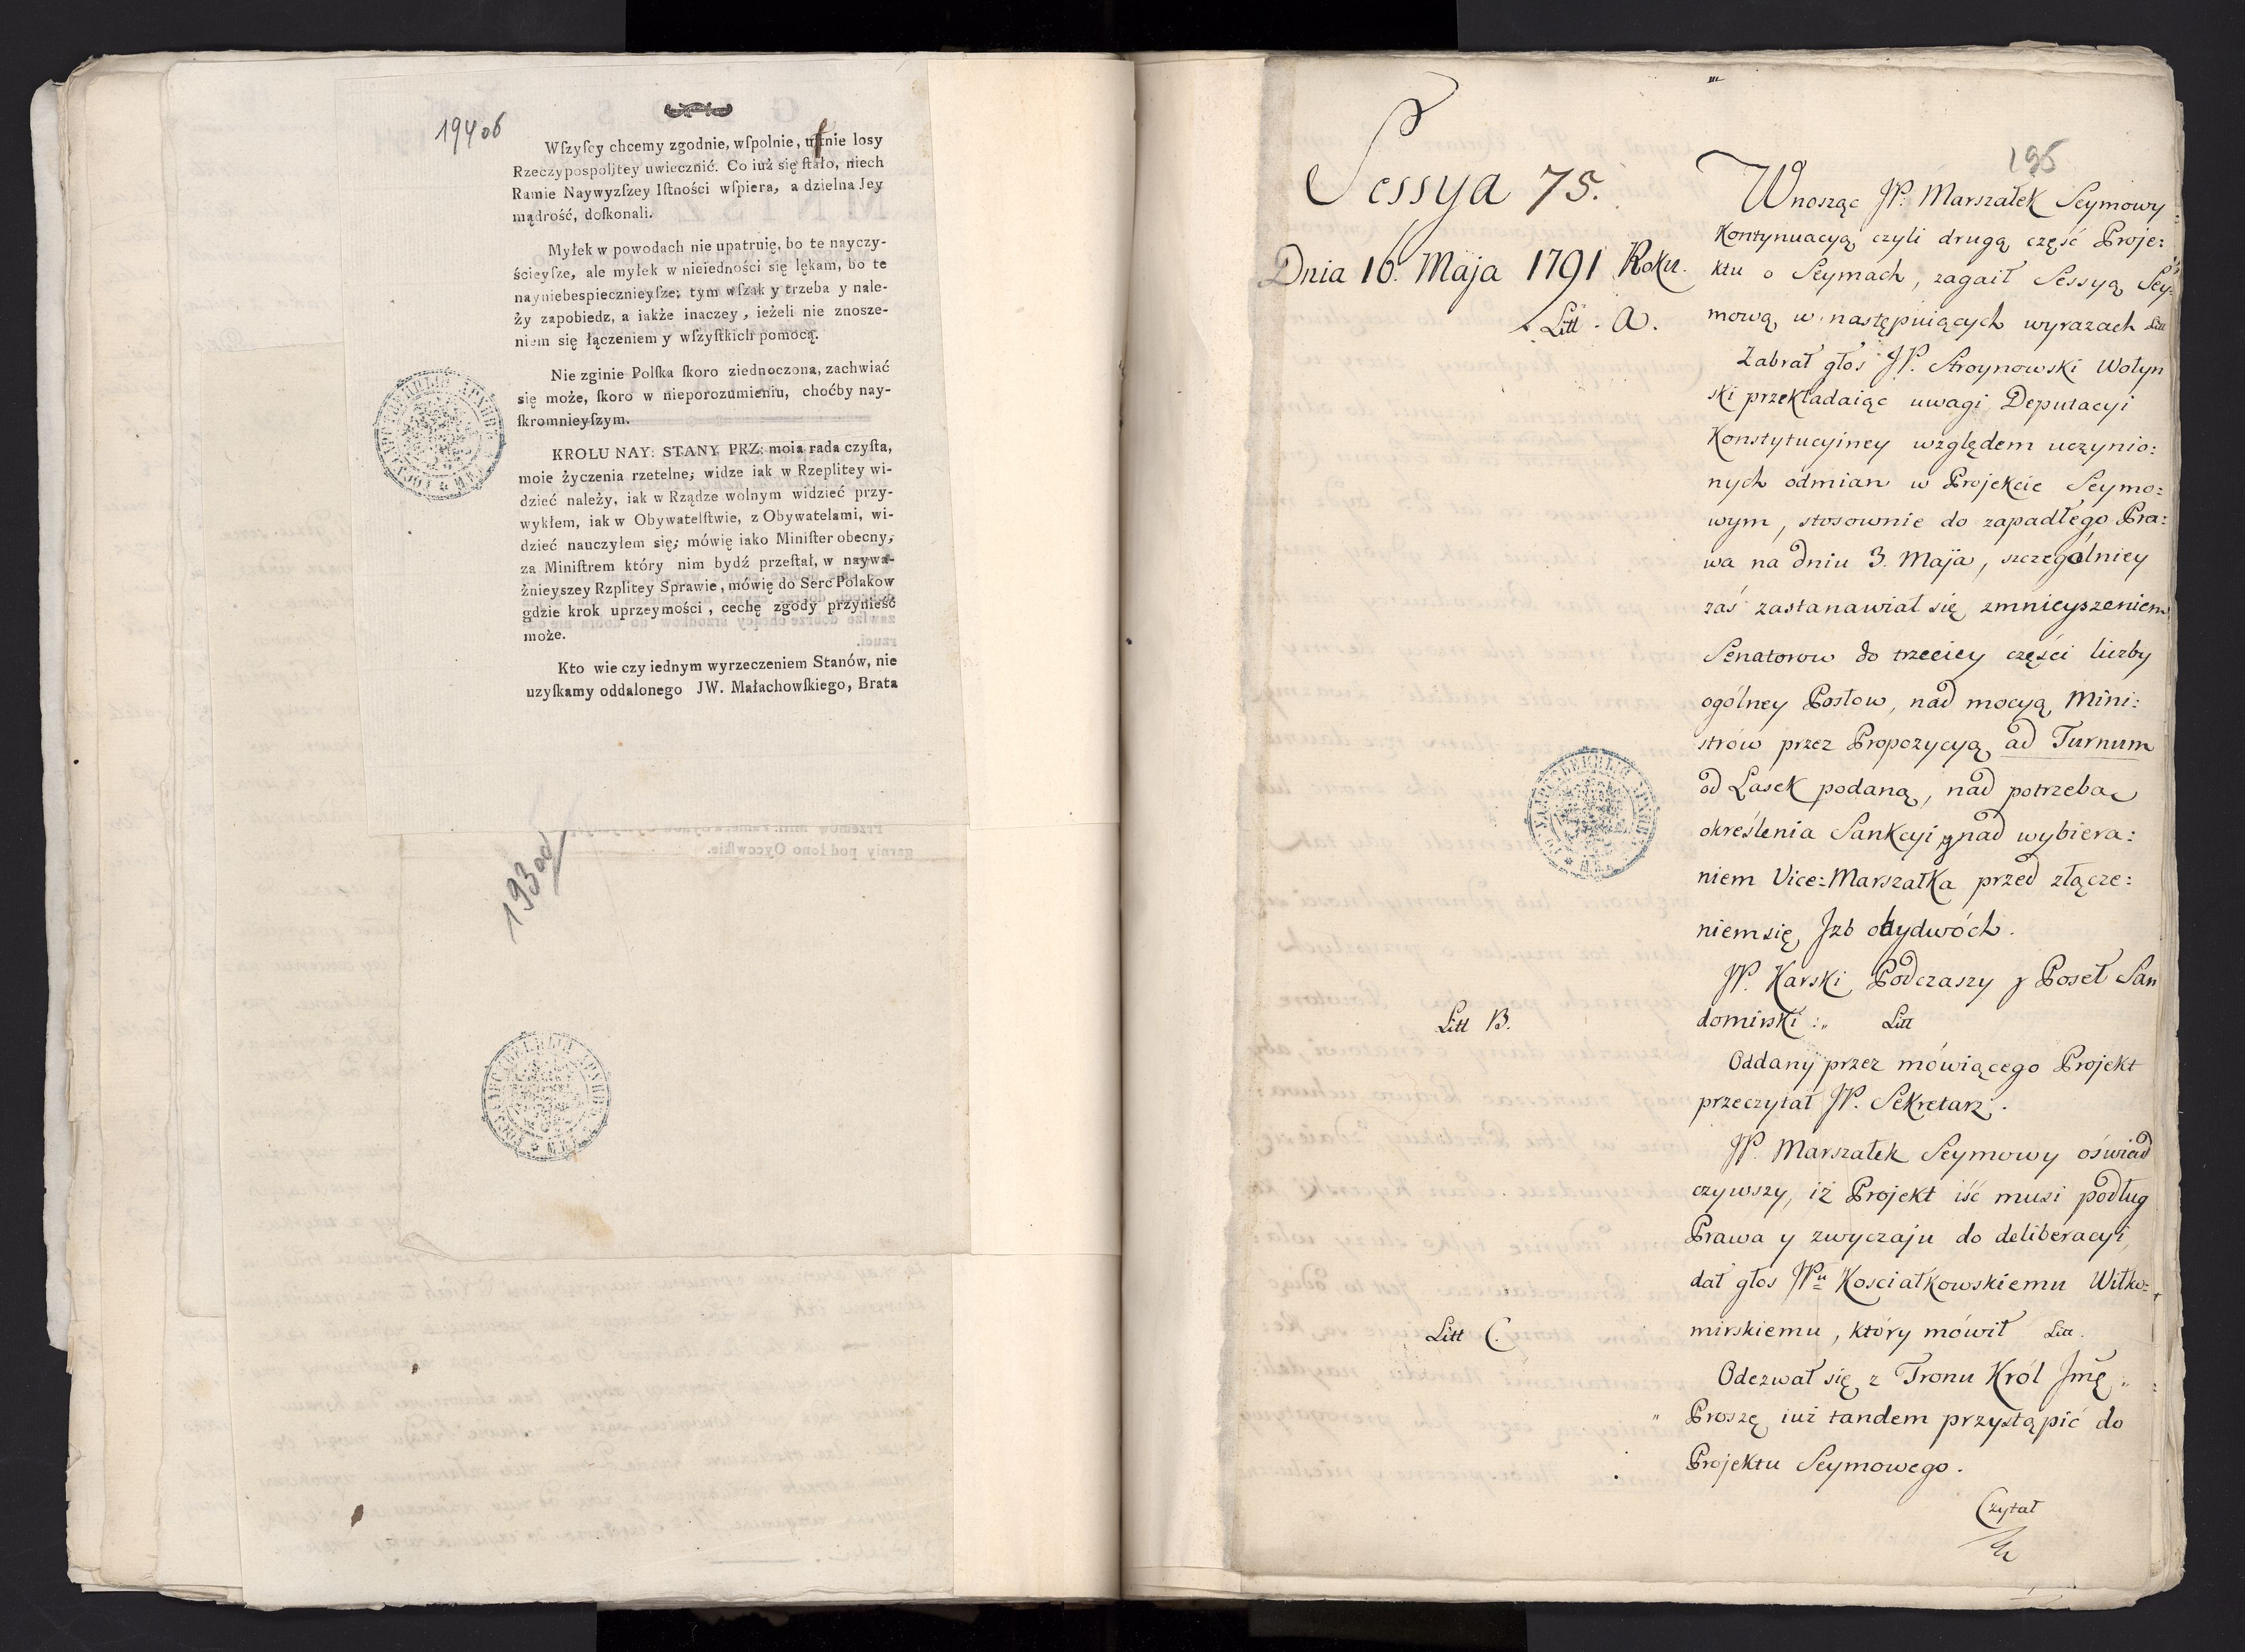 194 06
Wſzyſcy chcemy zgodnie, wſpolnie, uſtnie losy
Rzeczypospolitey uwiecznić. Co iuż się ſtało, niech
Ramie Naywyzſzey Iſtności wſpiera, a dzielna Jey
mądrość, doſkonali.
Myłek w powodach nie upatruię, bo te nayczy-
ścieyſze, ale myłek w nieiedności się lękam, bo te
nayniebespiecznieyſze; tym wſzak y trzeba y nale-
ży zapobiedz, a iakże inaczey, ieżeli nie znosze-
niem się łączeniem y wſzyſtkich pomocą.
Nie zginie Polſka ſkoro ziednoczona, zachwiać
się może, ſkoro w nieporozumieniu, choćby nay-
ſkromnieyſzym.
KROLU NAY: STANY PRZ: moia rada czyſta,
moie życzenia rzetelne; widze iak w Rzeplitey wi-
dzieć należy, iak w Rządze wolnym widzieć przy-
wykłem, iak w Obywatelſtwie, z Obywatelami, wi-
dzieć nauczyłem się; mówię iako Miniſter obecny,
za Miniſtrem który nim bydź przeſtał, w naywa-
żnieyszey Rzplitey Sprawie, mówię do Serc Polakow
gdzie krok uprzeymości, cechę zgody przynieść
może.
Kto wie czy iednym wyrzeczeniem Stanów, nie
uzyſkamy oddalonego JW. Małachowſkiego, Brata
193
195
Sessya 75.
Dnia 16. Maja 1791 Roku.
Litt. A.
Wnosząc JP. Marszałek Seymowy
Kontynuacyą czyli drugą część Proje:
ktu o Seymach, zagaił Sessyą Sey:
mową w następuiących wyrazach Litt
Zabrał głos JP. Stroynowski Wołyn
ski przekładaiąc uwagi Deputacyi
Konstytucyiney względem uczynio:
nych odmian w Projekcie Seymo:
wym, stosownie do zapadłego Pra:
wa na dniu 3. Maja, szczegolniey
zaś zastanawiał się zmnieyszeniem
Senatorow do trzeciey części liczby
ogólney Posłow, nad mocyą Mini:
strów przez Propozycyą ad Turnum
od Lasek podaną, nad potrzebą
określenia Sankcyi y nad wybiera:
niem Vice:Marszałka przed złącze:
niem się Jzb obydwóch.
JP. Karski Podczaszy y Poseł San
domirski :,, Litt
Litt B.
Oddany przez mówiącego Projekt
przeczytał JP. Sekretarz.
JP. Marszałek Seymowy oświad
czywszy, iż Projekt iść musi podług
Prawa y zwyczaju do deliberacyi,
dał głos JPu Kosciałkowskiemu Wiłko:
mirskiemu, który mówił Litt.
Litt C.
Odezwał się z Tronu Król Jmę „
„ Proszę iuż tandem przystąpić do
Projektu Seymowego.
Czytał